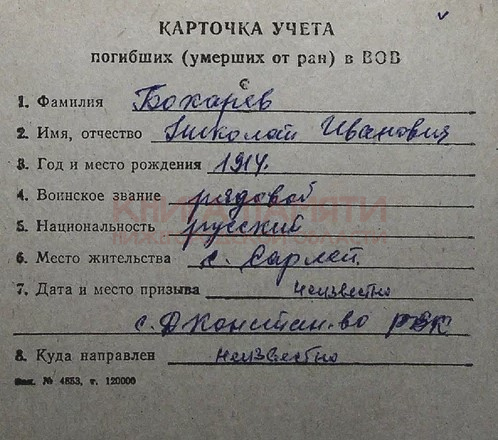 КАРТОЧКА УЧЕТА
погибших (умерших от ран) в ВОВ
1. Фамилия Бохарев
2. Имя, отчество Николай Иванович
3. Год и место рождения 1914.
4. Воинское звание рядовой
5. Национальность русский
КНИГА ПАМЯТИ
НИЖЕГОРОДСКОЙ ОБЛАСТИ
6. Место жительства с. Сарлей.
7. Дата и место призыва неизвестно
с. Д Констан-во РВК
8. Куда направлен неизвестно
Зак. № 4853, т. 120000